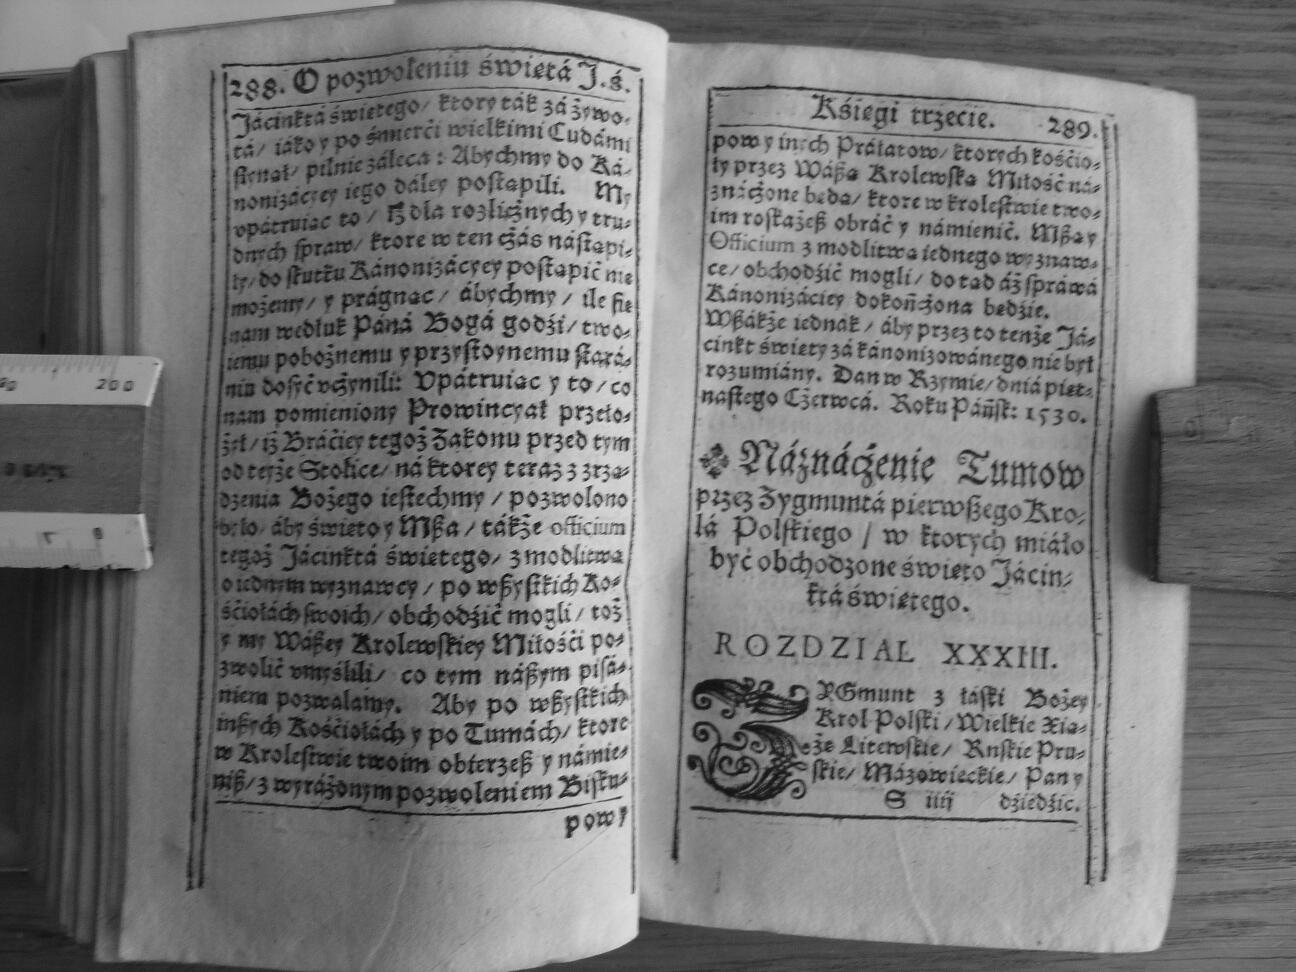 288. O pozwoleniu święta J. ś.
Jácinktá świętego/ ktory ták zá żywo-
tá/ iáko y po śmierći wielkimi Cudámi
słynął/ pilnie záleca: Abychmy do Ká-
nonizácyey iego dáley postąpili. My
vpátruiąc to/ Iż dla rozlicżnych y tru-
dnych spraw/ ktore w ten cżás nástąpi-
ły/ do skutku Kánonizácyey postąpić nie
możemy/ y prágnąc/ ábychmy/ ile się
nam wedłuk Páná Bogá godźi/ two-
iemu pobożnemu y przystoynemu stárá-
niu dosyć vcżynili: Vpátruiąc y to/ co
nam pomieniony Prowincyał przeło-
żył/ iż Bráćiey tegoż Zakonu przed tym
od teyże Stolice/ ná ktorey teraz z zrzą-
dzenia Bożego iestechmy/ pozwolono
było/ áby święto y Mßą/ tákże officium
tegoż Jácinktá świętego/ z modlitwą
o iednym wyznawcy/ po wßystkich Ko-
śćiołách swoich/ obchodźić mogli/ toż
y my Wáßey Krolewskiey Miłośći po-
zwolić vmyślili/ co tym náßym pisá-
niem pozwalamy. Aby po wßystkich
inßych Kośćiołách y po Tumách/ ktore
w Krolestwie twoim obierzeß y námie-
niß/ z wyráżonym pozwoleniem Bisku-
powy
Kśięgi trzecie. 289.
pow y inych Práłatow/ ktorych kośćio-
ły przez Wáßą Krolewską Miłość ná-
znácżone będą/ ktore w krolestwie two-
im roskażeß obráć y námienić. Mßą y
Officium z modlitwą iednego wyznaw-
ce/ obchodźić mogli/ do tąd áż spráwá
Kánonizáciey dokońcżona będźie.
Wßákże iednak/ áby przez to tenże Já-
cinkt święty zá kánonizowánego nie był
rozumiány. Dan w Rzymie/ dniá pięt-
nastego Cżerwcá. Roku Páńsk: 1530.
Náznácżenie Tumow
przez Zygmuntá pierwßego Kro-
lá Polskiego/ w ktorych miáło
być obchodzone święto Jácin-
ktá świętego.
ROZDZIAL XXXIII.
ZYGmunt z łáski Bożey
Krol Polski/ Wielkie Xią-
żę Litewskie/ Ruskie Pru-
skie/ Mázowieckie/ Pan y
S iiij dźiedźic.
200